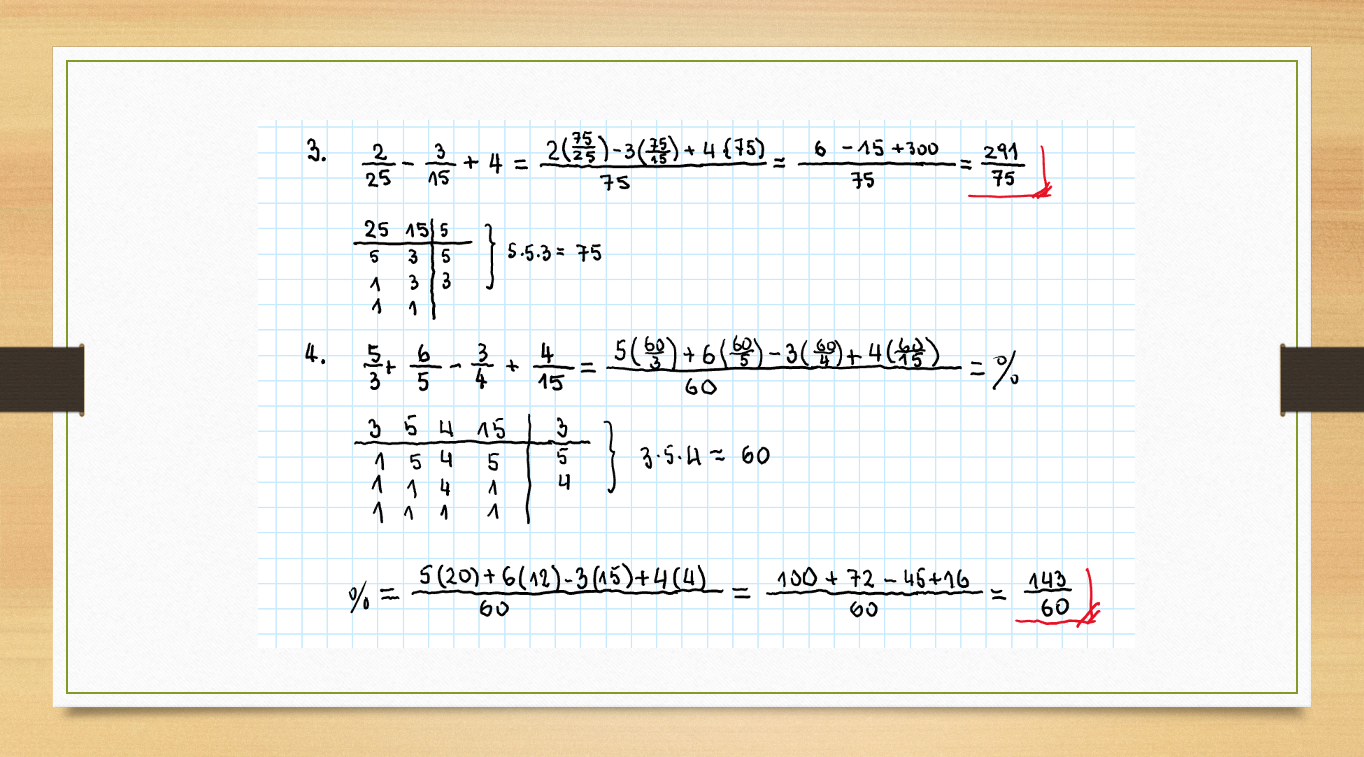 3. 2/25 - 3/15 + 4 = (2(75/25) - 3(75/15) + 4{75))/75 = (6 - 15 + 300)/75 = 291/75
25 15 | 5
5 3 | 5
1 3 | 3
1 1 |
} 5·5·3 = 75
4. 5/3 + 6/5 - 3/4 + 4/15 = (5(60/3) + 6(60/5) - 3(60/4) + 4(60/15))/60 = %
3 5 4 15 | 3
1 5 4 5 | 5
1 1 4 1 | 4
1 1 1 1 |
} 3·5·4 = 60
% = (5(20) + 6(12) - 3(15) + 4(4))/60 = (100 + 72 - 45 + 16)/60 = 143/60